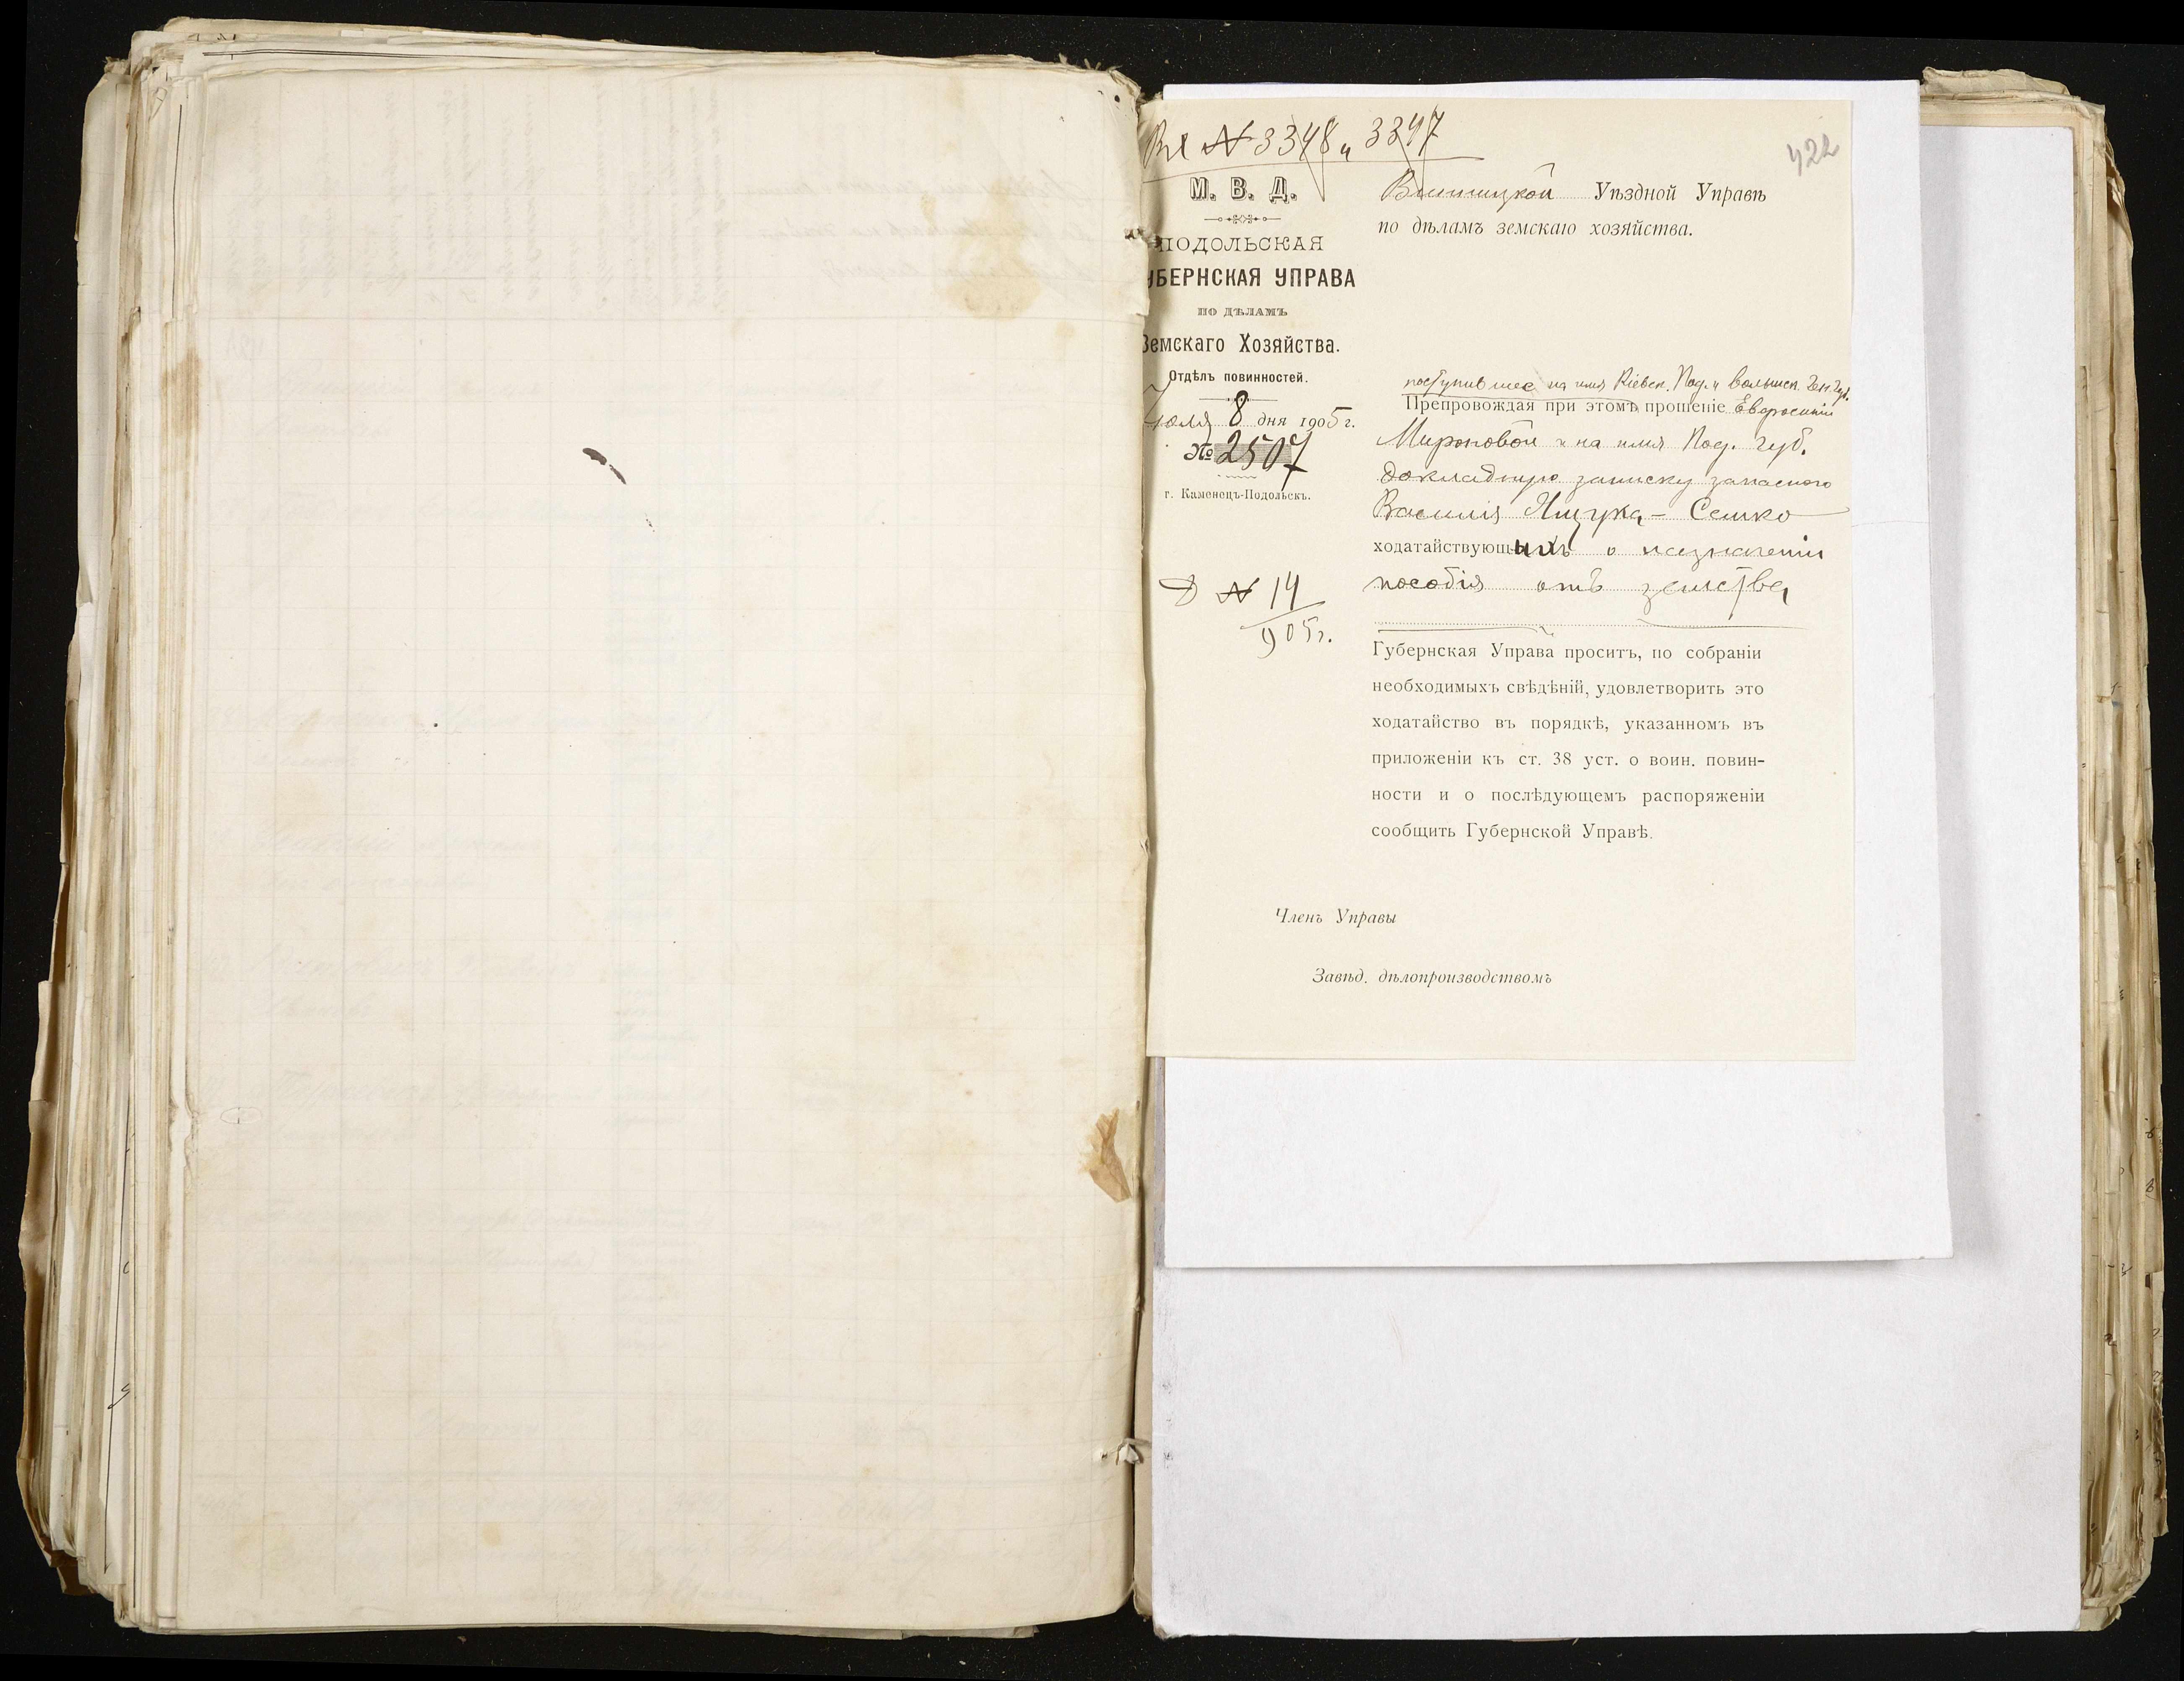 422
Вх № 3348 и 3347
М. В. Д.
ПОДОЛЬСКАЯ
УБЕРНСКАЯ УПРАВА
ПО ДѢЛАМЪ
Земскаго Хозяйства.
Отдѣлъ повинностей.
Іюля 8 дня 1905 г.
№ 2507
г. Каменецъ-Подольскъ.
Д № 14
905 г.
Винницкой Уѣздной Управѣ
по дѣламъ земскаго хозяйства.
поступившее на имя Кіевск. Под. и Волынск. Ген. Губ.
Препровождая при этомъ прошеніе Евфросиніи
Мироновой и на имя Под. Губ.
докладную записку запасного
Василія Ящука-Сешко
ходатайствующихъ о назначеніи
пособія отъ земства
Губернская Управа проситъ, по собраніи
необходимыхъ свѣдѣній, удовлетворить это
ходатайство въ порядкѣ, указанномъ въ
приложеніи къ ст. 38 уст. о воин. повин-
ности и о послѣдующемъ распоряженіи
сообщить Губернской Управѣ.
Членъ Управы
Завѣд. дѣлопроизводствомъ